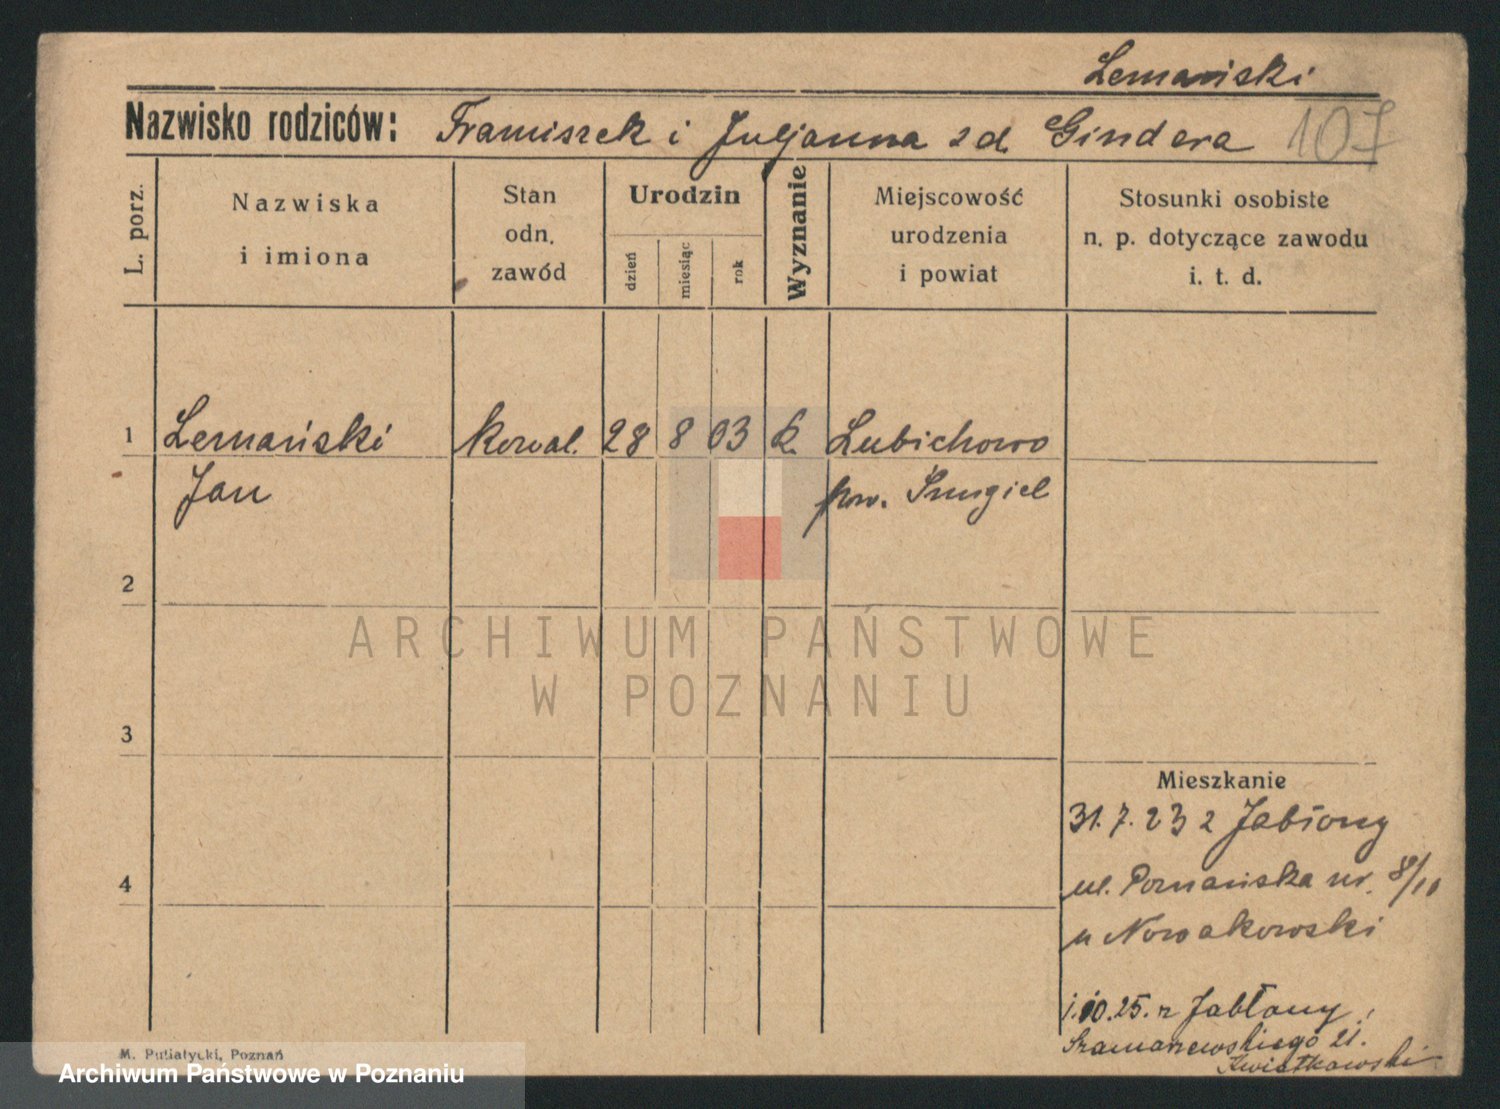 Lemański
Nazwisko rodziców: Franciszek i Juljanna z d. Gindera 107
L. porz.
Nazwiska
i imiona
Stan
odn.
zawód
Urodzin
dzień
miesiąc
rok
Wyznanie
Miejscowość
urodzenia
i powiat
Stosunki osobiste
n. p. dotyczące zawodu
i. t. d.
1 Lemański kowal. 28 8 03 k. Lubichowo
Jan pow. Śmigiel
2
ARCHIWUM PAŃSTWOWE
W POZNANIU
3
Mieszkanie
31.7.23 z Jabłony
4
ul. Poznańska nr. 8/10
u Nowakowski
1.10.25. z Jabłony
Szamarzewskiego 21.
Kwiatkowski
M. Putiatycki, Poznań
Archiwum Państwowe w Poznaniu